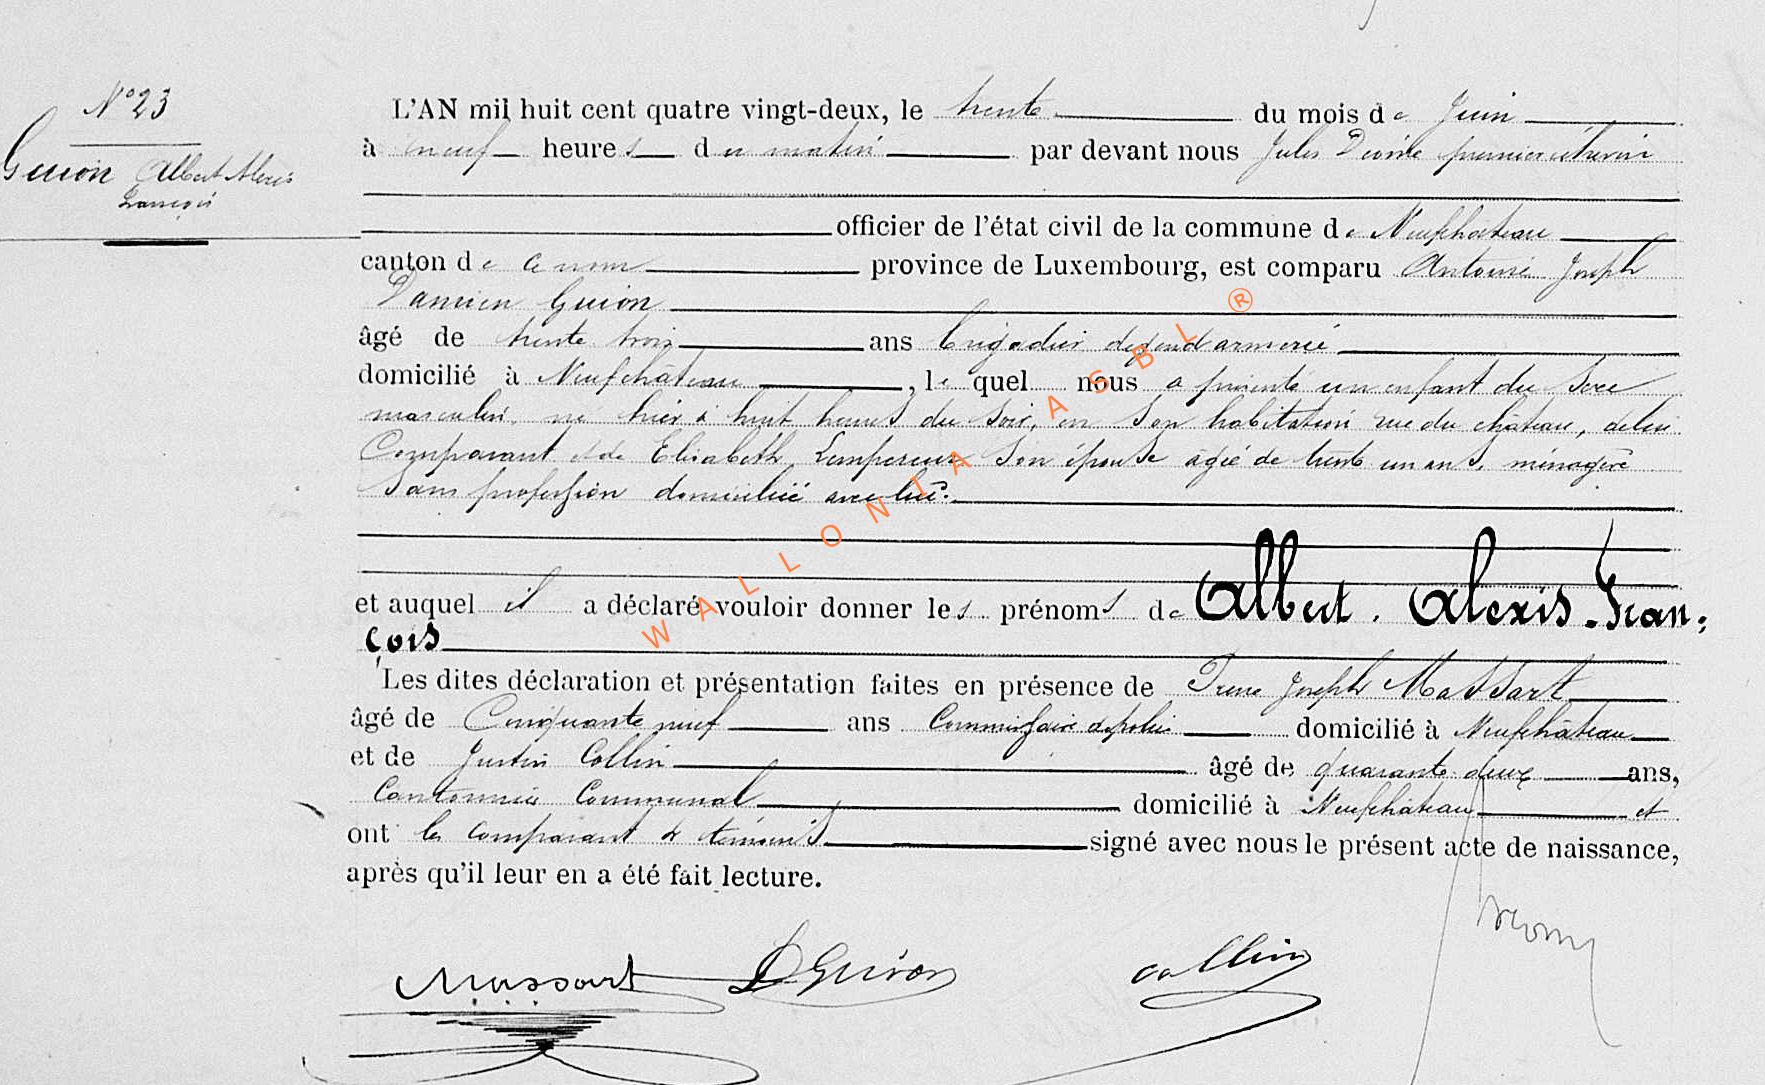 N° 23
Guion Albert Alexis
François
L'AN mil huit cent quatre vingt-deux, le trente du mois de Juin
à neuf heures du matin par devant nous Jules premier échevin
officier de l'état civil de la commune de Neufchâteau
canton de ce nom province de Luxembourg, est comparu Antoine Joseph
Damien Guion
âgé de trente trois ans brigadier de gendarmerie
domicilié à Neufchâteau, le quel nous a présenté un enfant du sexe
masculin, né hier à huit heures du soir, en son habitation rue du château, de lui
Comparant et de Elisabeth Lempereur son épouse agée de trente un ans, ménagère
sans profession domiciliée avec lui.
et auquel il a déclaré vouloir donner les prénoms de Albert. Alexis-Fran:
çois
Les dites déclaration et présentation faites en présence de Joseph Massart
âgé de Cinquante neuf ans Commissaire de police domicilié à Neufchâteau
et de Justin Collin âgé de quarante deux ans,
Cantonnier Communal domicilié à Neufchâteau et
ont les comparant & témoins signé avec nous le présent acte de naissance,
après qu'il leur en a été fait lecture.
Massart Guion Collin
WALLONIA ASBL ®